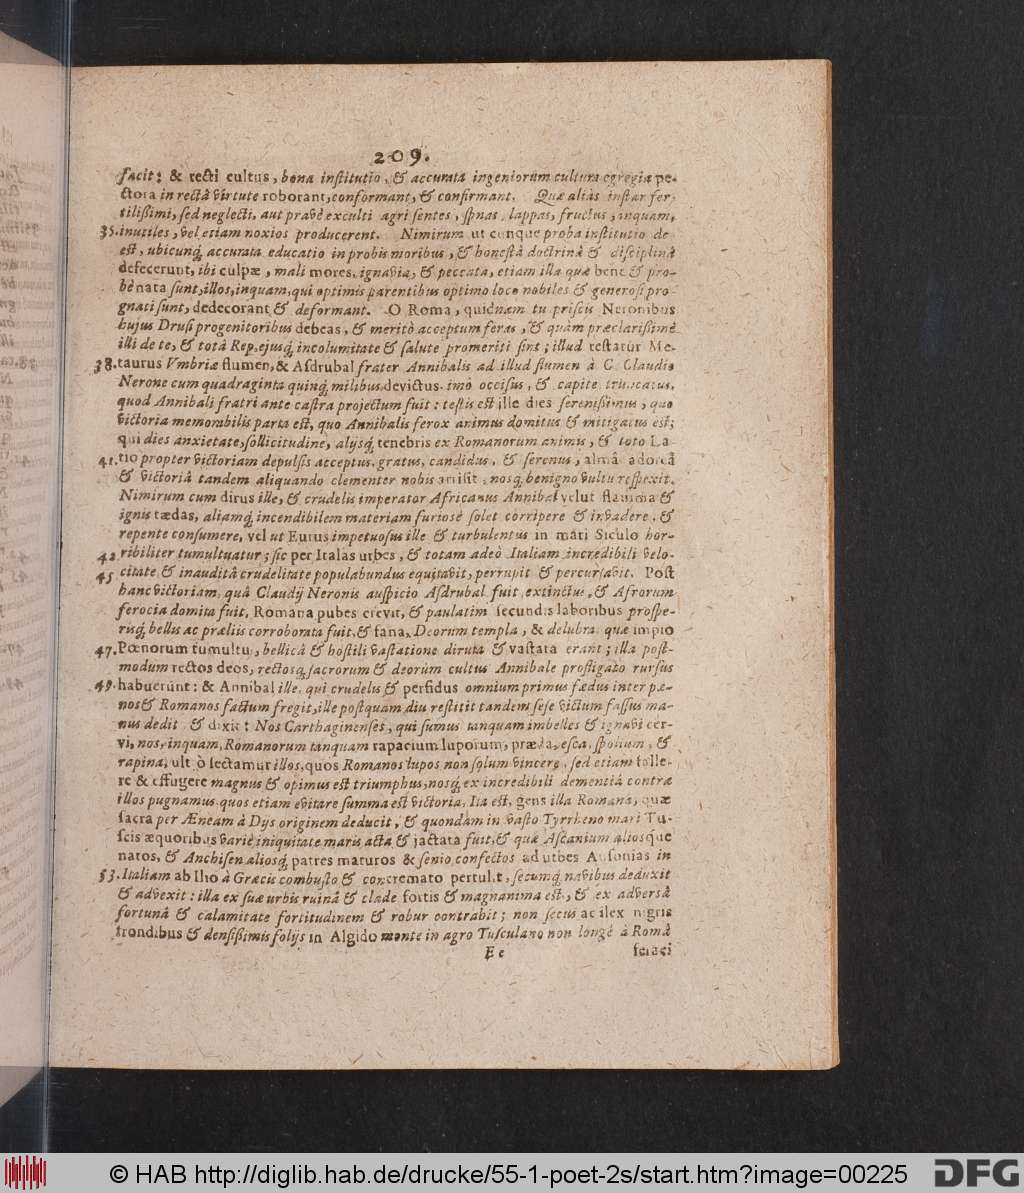 209.
facit: & recti cultus, bona institutio, & accurata ingeniorum cultura egregia pe-
ctora in rectâ virtute roborant, conformant, & confirmant. Quæ aliàs instar fer-
tilißimi, sed neglecti, aut pravè exculti agri sentes, spinas, lappas, fructus, inquam,
35. inutiles, vel etiam noxios producerent. Nimirum ut cunque proba institutio de-
est, ubicunq́, accurata educatio in probis moribus, & honestâ doctrinâ & disciplinâ
defecerunt, ibi culpæ, mali mores, ignavia, & peccata, etiam illa quæ bene & pro-
bè nata sunt, illos, inquam, qui optimis parentibus optimo loco nobiles & generosi pro-
gnati sunt, dedecorant & deformant. O Roma, quidnam tu priscis Neronibus
hujus Drusi progenitoribus debeas, & meritò acceptum feras, & quàm præclarißimè
illi de te, & totâ Rep. ejusq́, incolumitate & salute promeriti sint; illud testatur Me-
38. taurus Vmbriæ flumen, & Asdrubal frater Annibalis ad illud flumen à C. Claudio
Nerone cum quadraginta quinq́, milibus devictus. imò occisus, & capite truncatus,
quod Annibali fratri ante castra projectum fuit: testis est ille dies serenißimus, quo
victoria memorabilis parta est, quo Annibalis ferox animus domitus & mitigatus est;
qui dies anxietate, sollicitudine, alijsq́, tenebris ex Romanorum animis, & toto La-
41. tio propter victoriam depulsis acceptus, gratus, candidus, & serenus, almâ adoreâ
& victoriâ tandem aliquando clementer nobis arrisit, nosq́, benigno vultu respexit.
Nimirum cum dirus ille, & crudelis imperator Africanus Annibal velut flamma &
ignis tædas, aliamq́, incendibilem materiam furiosè solet corripere & invadere, &
repente consumere, vel ut Eurus impetuosus ille & turbulentus in mari Siculo hor-
42. ribiliter tumultuatur; sic per Italas urbes, & totam adeò Italiam incredibili velo-
45 citate & inauditâ crudelitate populabundus equitavit, perrupit & percursavit. Post
hanc victoriam, quâ Claudij Neronis auspicio Asdrubal fuit extinctus, & Afrorum
ferocia domita fuit, Romana pubes crevit, & paulatim secundis laboribus prospe-
risq́, bellis ac præliis corroborata fuit, & fana, Deorum templa, & delubra quæ impio
47. Pœnorum tumultu, bellicâ & hostili vastatione diruta & vastata erant; illa post-
modum rectos deos, rectosq́, sacrorum & deorum cultus Annibale profligato rursus
49. habuerunt: & Annibal ille, qui crudelis & perfidus omnium primus fœdus inter pœ-
nos & Romanos factum fregit, ille postquam diu restitit tandem sese victum fassus ma-
nus dedit & dixit: Nos Carthaginenses, qui sumus tanquam imbelles & ignavi cer-
vi, nos, inquam, Romanorum tanquam rapacium luporum, præda, esca, spolium, &
rapina, ultrò sectamur illos, quos Romanos lupos non solum vincere, sed etiam falle-
re & effugere magnus & opimus est triumphus, nosq́, ex incredibili dementiâ contra
illos pugnamus, quos etiam evitare summa est victoria. Ita est, gens illa Romana, quæ
sacra per Æneam à Dys originem deducit, & quondam in vasto Tyrrheno mari Tu-
scis æquoribus variè, iniquitate maris acta & jactata fuit, & quæ Ascanium aliosque
natos, & Anchisen aliosq́, patres maturos & senio confectos ad urbes Ausonias in
53. Italiam ab Ilio à Græcis combusto & concremato pertulit, secumq́, navibus deduxit
& advexit: illa ex suæ urbis ruinâ & clade fortis & magnanima est, & ex adversâ
fortunâ & calamitate fortitudinem & robur contrahit; non secus ac ilex nigris
frondibus & densißimis folijs in Algido monte in agro Tusculano non longè à Româ
Ee feraci
© HAB http://diglib.hab.de/drucke/55-1-poet-2s/start.htm?image=00225 DFG